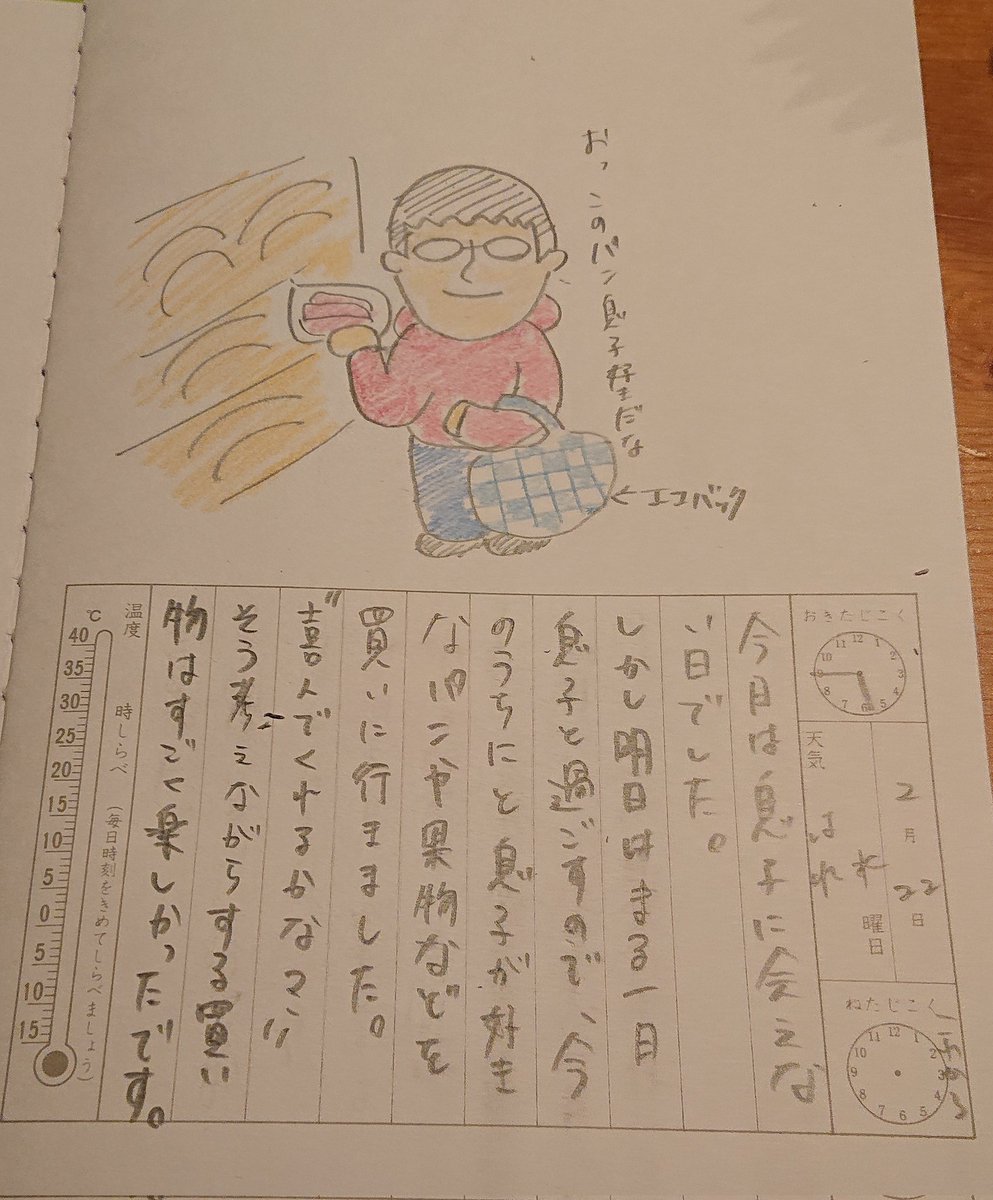 おっ このパン 息子好きだな
←エコバック
おきたじこく
12 1 2 3 4 5 6 7 8 9 10 11
2月22日
水曜日
天気 はれ
ねたじこく
これから
12 1 2 3 4 5 6 7 8 9 10 11
今日は息子に会えな
い日でした。
しかし明日はまる一日
息子と過ごすので、今
のうちにと息子が好き
なパンや果物などを
買いに行きました。
"喜んでくれるかなァ"
そう考えながらする買い
物はすごく楽しかったです。
温度 時しらべ (毎日時刻をきめてしらべましょう)
℃
40
35
30
25
20
15
10
5
0
5
10
15